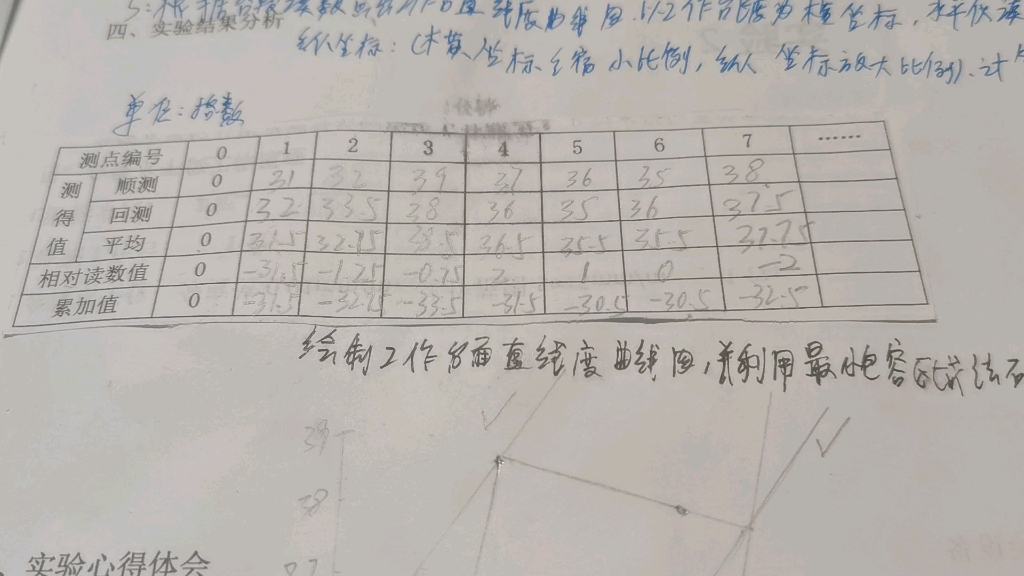 5: 根据各段读数点绘工作台直线度曲线图,以工作台长度为横坐标,水平仪读
四、实验结果分析
纵坐标:(木黄坐标缩小比例,纵坐标放大比例).计
单位:格数
测点编号 0 1 2 3 4 5 6 7 ……
测得值 顺测 0 31 32 39 37 36 35 38
回测 0 32 33.5 38 36 35 36 37.5
平均 0 31.5 32.75 38.5 36.5 35.5 35.5 37.75
相对读数值 0 -31.5 -1.25 -0.75 2 1 0 -2
累加值 0 -31.5 -32.75 -33.5 -31.5 -30.5 -30.5 -32.5
绘制工作台面直线度曲线图,并利用最小包容区域法
39
38
37
实验心得体会